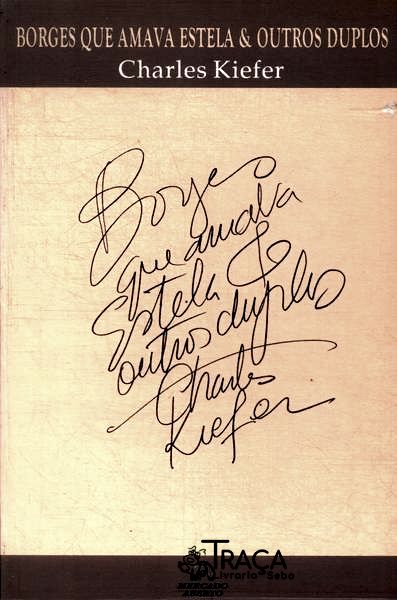 BORGES QUE AMAVA ESTELA & OUTROS DUPLOS
Charles Kiefer
Borges
que amava
Estela &
outros duplos
Charles
Kiefer
TRAÇA
Livraria e Sebo
MERCADO
ABERTO